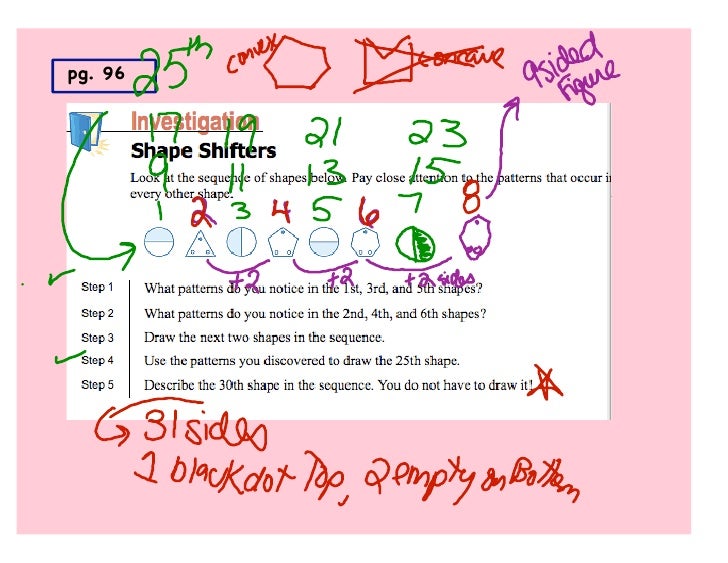 pg. 96
25th
convex
concave
9sided
Figure
Investigation
17 19 21 23
Shape Shifters
Look at the sequence of shapes below. Pay close attention to the patterns that occur in
9 11 13 15
every other shape.
1 2 3 4 5 6 7 8
+2 +2 +2 sides
Step 1 What patterns do you notice in the 1st, 3rd, and 5th shapes?
Step 2 What patterns do you notice in the 2nd, 4th, and 6th shapes?
Step 3 Draw the next two shapes in the sequence.
Step 4 Use the patterns you discovered to draw the 25th shape.
Step 5 Describe the 30th shape in the sequence. You do not have to draw it!
31 sides
1 black dot Top, 2 empty on Bottom